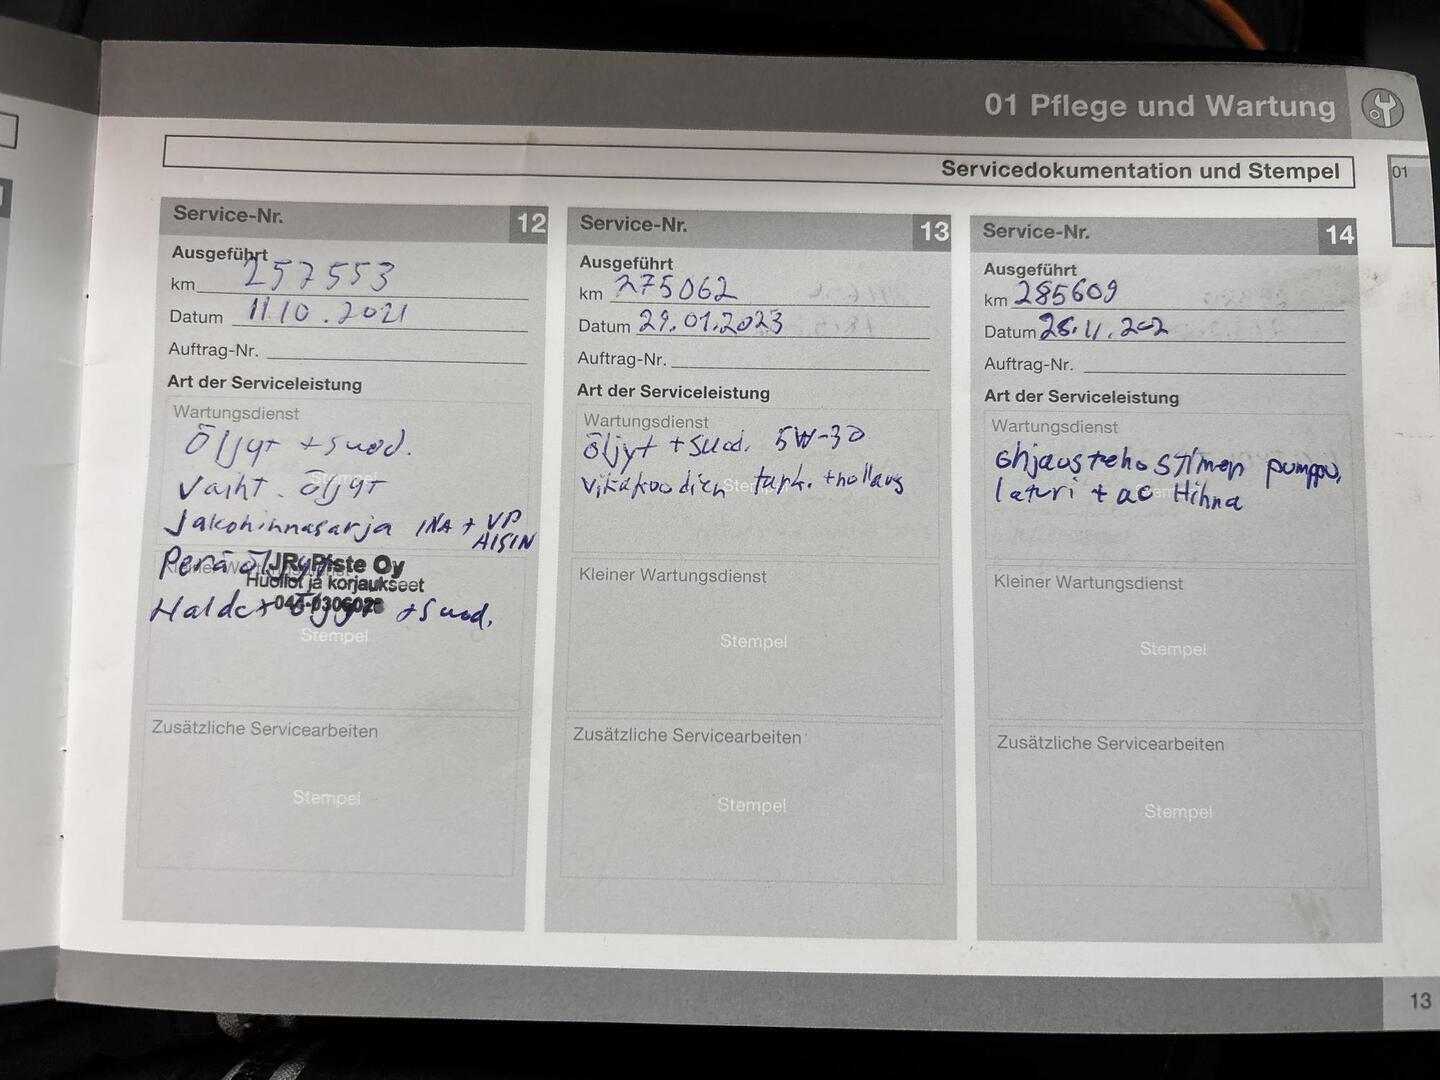 01 Pflege und Wartung
Servicedokumentation und Stempel
01
Service-Nr. 12
Ausgeführt
km 257553
Datum 11.10.2021
Auftrag-Nr.
Art der Serviceleistung
Wartungsdienst
Öljyt + suod.
Stempel
Vaiht. Öljyt
Jakohihnasarja INA + VP
AISIN
Perä öljyt
Kleiner Wartungsdienst
JR-Piste Oy
Huollot ja korjaukset
Haldex Öljyt + suod.
Stempel
Zusätzliche Servicearbeiten
Stempel
Service-Nr. 13
Ausgeführt
km 275062
Datum 29.01.2023
Auftrag-Nr.
Art der Serviceleistung
Wartungsdienst
Öljyt + suod. 5W-30
vikakoodien tark. + nollaus
Stempel
Kleiner Wartungsdienst
Stempel
Zusätzliche Servicearbeiten
Stempel
Service-Nr. 14
Ausgeführt
km 285609
Datum 28.11.202
Auftrag-Nr.
Art der Serviceleistung
Wartungsdienst
ohjaustehostimen pumppu,
laturi + ac Hihna
Stempel
Kleiner Wartungsdienst
Stempel
Zusätzliche Servicearbeiten
Stempel
13